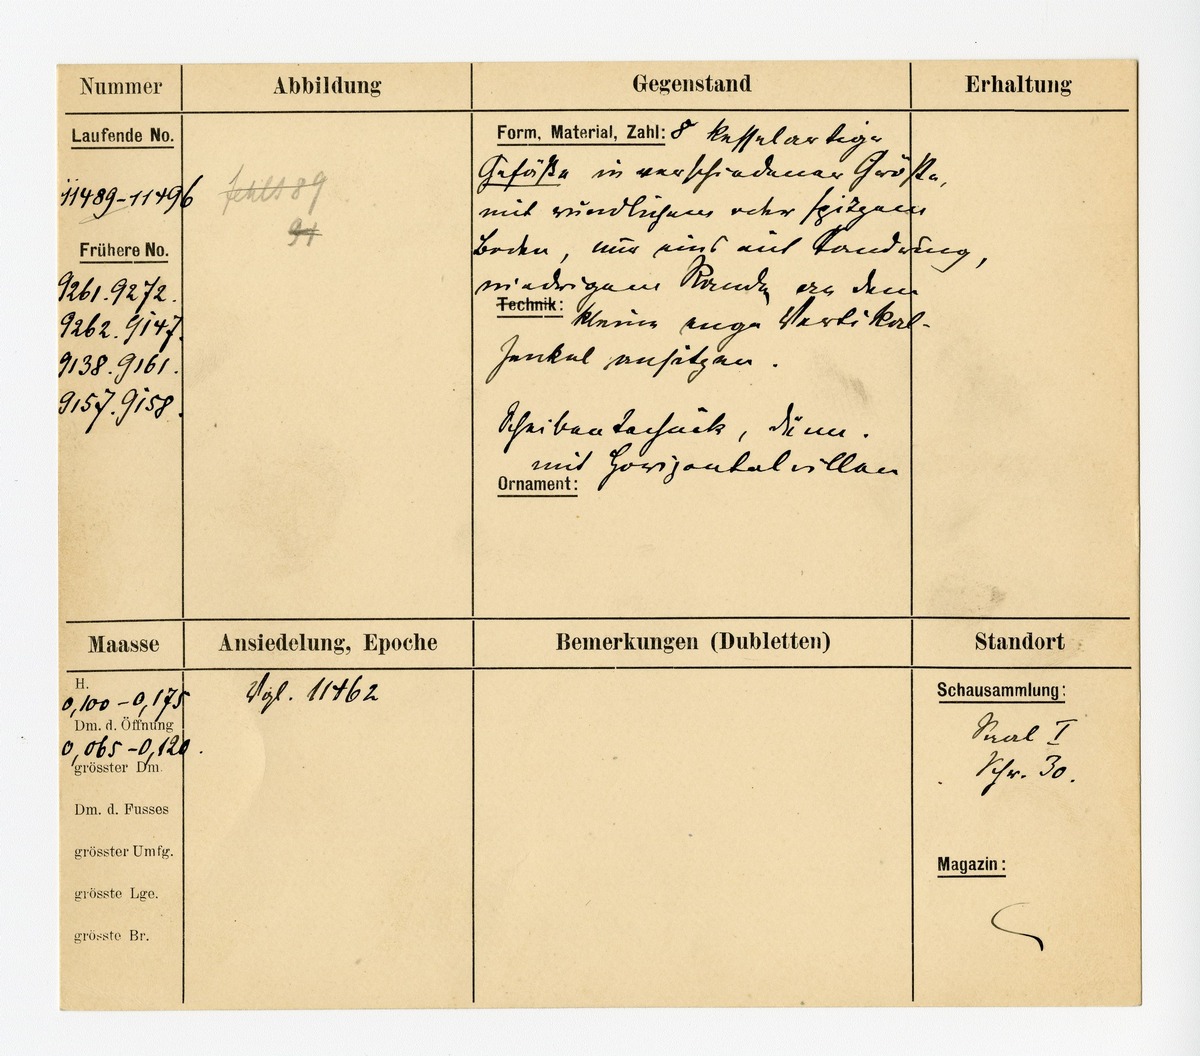 Nummer
Laufende No.
11489-11496
Frühere No.
9261. 9272.
9262. 9147.
9138. 9161.
9157. 9158.
Abbildung
fehlt 89
91
Gegenstand
Form, Material, Zahl: 8 kesselartige
Gefäße in verschiedener Größe,
mit rundlichem oder spitzem
Boden, nur eins mit Standring,
niedrigem Rande an dem
Technik:
kleine enge Vertikal-
henkel ansitzen.
Scheibentechnik, dünn.
mit Horizontalrillen
Ornament:
Erhaltung
Maasse
H.
0,100-0,175
Dm. d. Öffnung
0,065-0,120.
grösster Dm.
Dm. d. Fusses
grösster Umfg.
grösste Lge.
grösste Br.
Ansiedelung, Epoche
Vgl. 11462
Bemerkungen (Dubletten)
Standort
Schausammlung:
Saal I
Schr. 30.
Magazin: